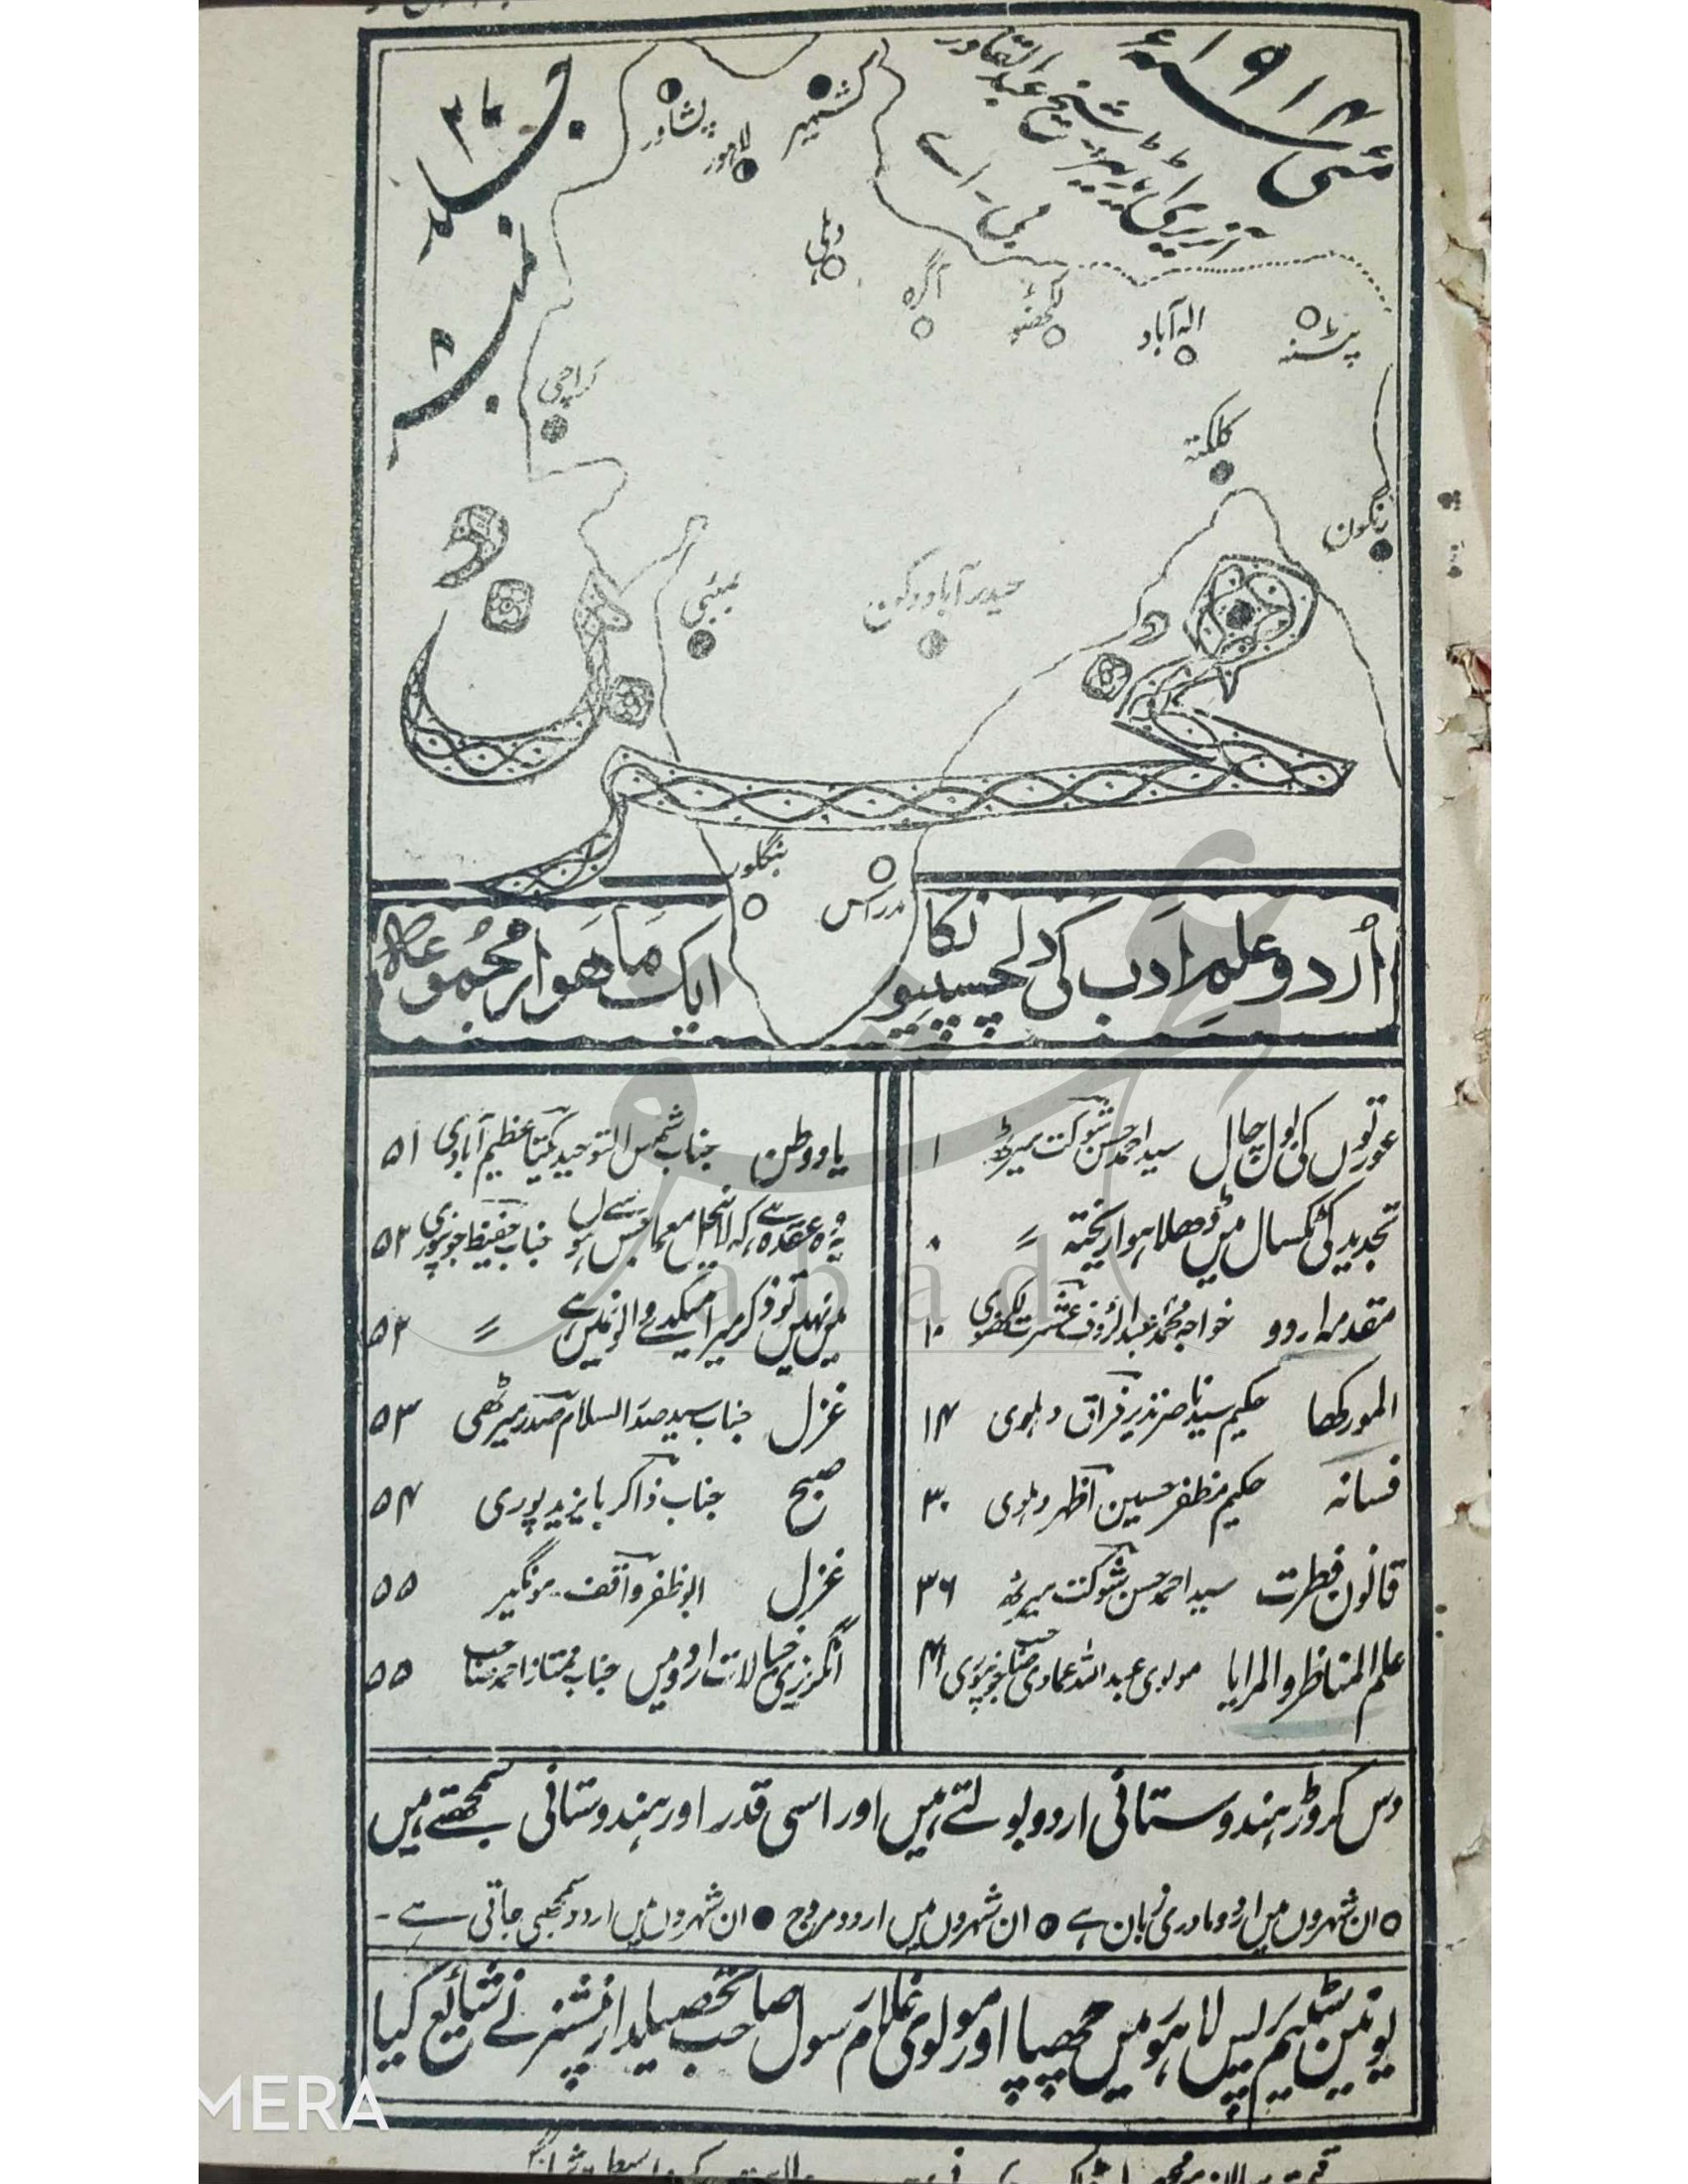 مئی ۱۹۱۴ء
آنریری ایڈیٹر شیخ عبدالقادر
بی۔ اے
جلد ۲۷
نمبر ۸
پشاور
کشمیر
لاہور
دہلی
آگرہ
لکھنؤ
الہ آباد
پٹنہ
کراچی
کلکتہ
رنگون
بمبئی
حیدرآباد دکن
مخزن
بنگلور
مدراس
اُردو علم ادب کی دلچسپیونکا ایک ماہوار مجموعہ
عورتوں کی بول چال سید احمد حسن شوکت میرٹھ ۱
تجدید کی ٹکسال میں ڈھلا ہوا ریختہ 〃
مقدمہ اردو خواجہ محمد عبدالرؤف عشرت لکھنوی ۱۰
المورکھا حکیم سید ناصر نذیر فراق دہلوی ۱۴
فسانہ حکیم مظفر حسین اظہر دہلوی ۳۰
قانون فطرت سید احمد حسن شوکت میرٹھ ۳۶
علم المناظر والمرایا مولوی عبداللہ عمادی صاحب جونپوری ۴۱
یاد وطن جناب شمس التوحید یکتا عظیم آبادی ۵۱
یہ وہ عقدہ ہے کہ لاینحل معما جس سے ہو جناب حفیظ جونپوری ۵۲
میں نہیں تو ذکر میرا میکدے والوں میں ہے 〃 ۵۲
غزل جناب سید صدالسلام صدر میرٹھی ۵۳
صبح جناب ذاکر بایزید پوری ۵۴
غزل ابو ظفر واقف۔ مونگیر ۵۵
انگریزی خیالات اردو میں جناب ممتاز احمد صاحب ۵۵
دس کروڑ ہندوستانی اردو بولتے ہیں اور اسی قدر اور ہندوستانی سمجھتے ہیں
ان شہروں میں اردو مادری زبان ہے ان شہروں میں اردو مروج ان شہروں میں اردو سمجھی جاتی ہے۔
یونین سٹیم پریس لاہور میں چھپا اور مولوی غلام رسول صاحب تحصیلدار پنشنر نے شائع کیا
abad
MERA